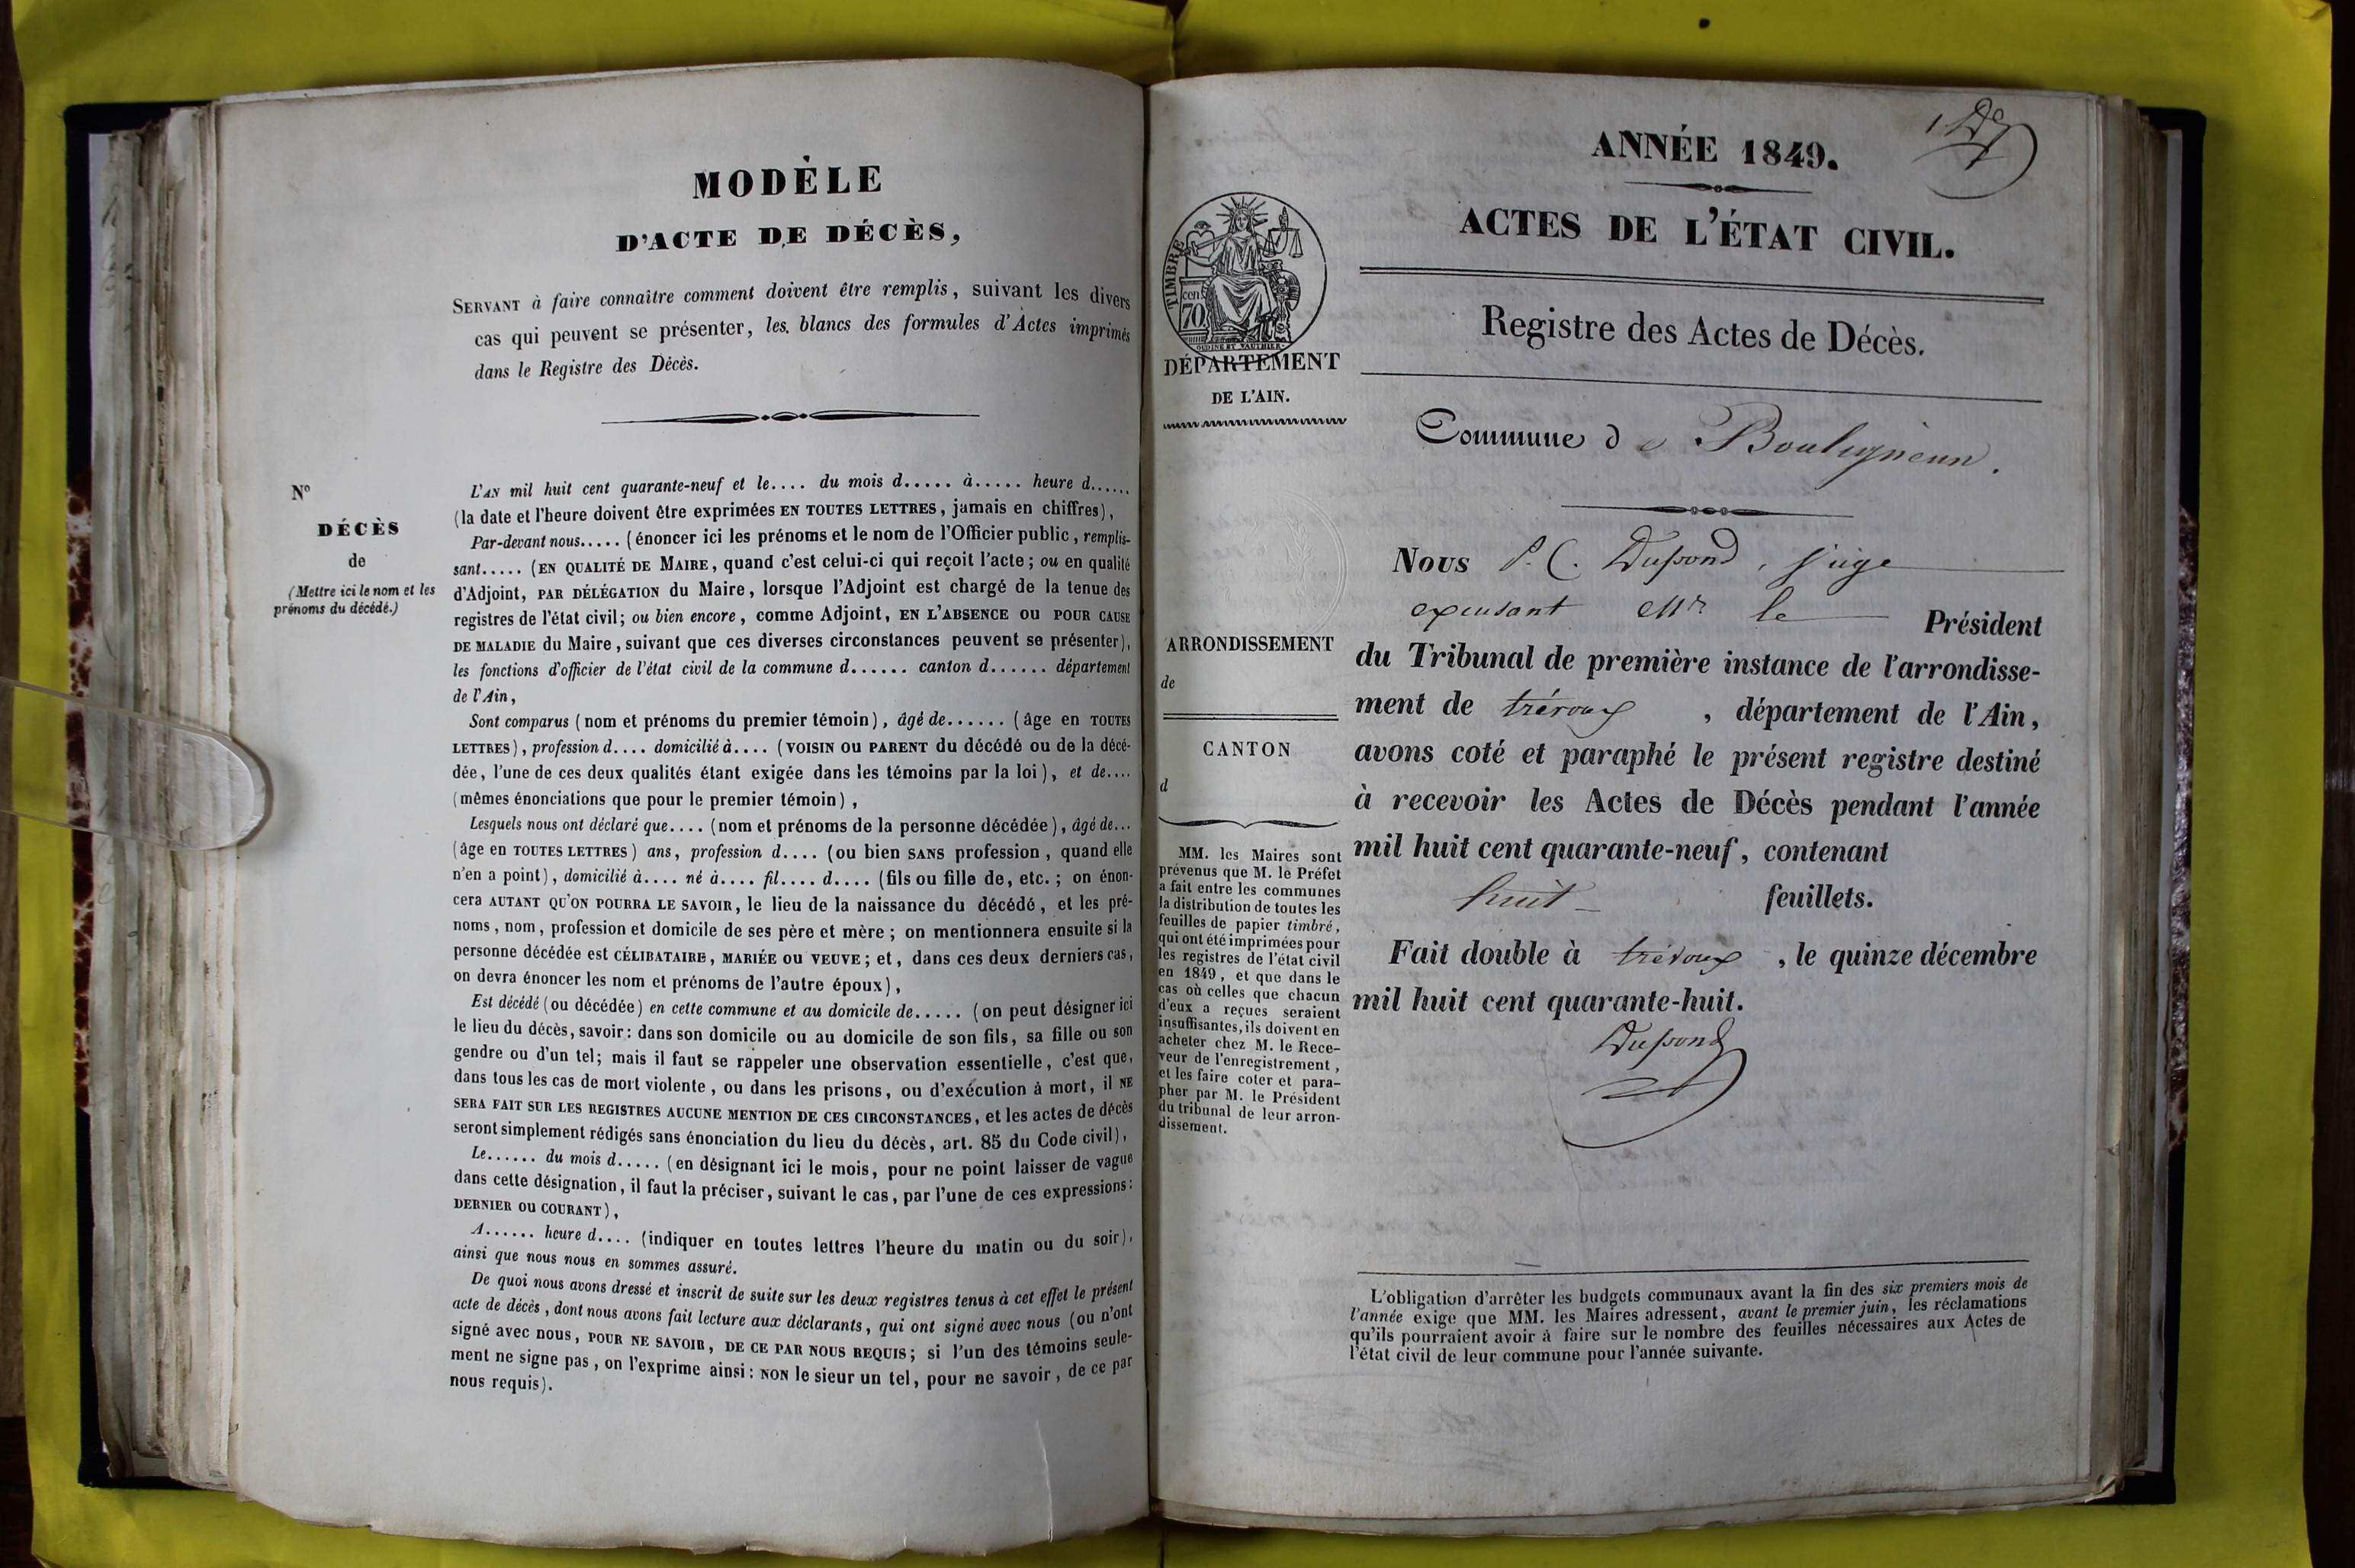 MODÈLE
D'ACTE DE DÉCÈS,
SERVANT à faire connaître comment doivent être remplis, suivant les divers
cas qui peuvent se présenter, les blancs des formules d'Actes imprimés
dans le Registre des Décès.
N°
DÉCÈS
de
(Mettre ici le nom et les
prénoms du décédé.)
L'AN mil huit cent quarante-neuf et le.... du mois d..... à..... heure d......
(la date et l'heure doivent être exprimées EN TOUTES LETTRES, jamais en chiffres),
Par-devant nous..... (énoncer ici les prénoms et le nom de l'Officier public, remplis-
sant..... (EN QUALITÉ DE MAIRE, quand c'est celui-ci qui reçoit l'acte; ou en qualité
d'Adjoint, PAR DÉLÉGATION du Maire, lorsque l'Adjoint est chargé de la tenue des
registres de l'état civil; ou bien encore, comme Adjoint, EN L'ABSENCE OU POUR CAUSE
DE MALADIE du Maire, suivant que ces diverses circonstances peuvent se présenter),
les fonctions d'officier de l'état civil de la commune d...... canton d...... département
de l'Ain,
Sont comparus (nom et prénoms du premier témoin), âgé de...... (âge en TOUTES
LETTRES), profession d.... domicilié à.... (VOISIN OU PARENT du décédé ou de la décé-
dée, l'une de ces deux qualités étant exigée dans les témoins par la loi), et de....
(mêmes énonciations que pour le premier témoin),
Lesquels nous ont déclaré que.... (nom et prénoms de la personne décédée), âgé de...
(âge en TOUTES LETTRES) ans, profession d.... (ou bien SANS profession, quand elle
n'en a point), domicilié à.... né à.... fil.... d.... (fils ou fille de, etc.; on énon-
cera AUTANT QU'ON POURRA LE SAVOIR, le lieu de la naissance du décédé, et les pré-
noms, nom, profession et domicile de ses père et mère; on mentionnera ensuite si la
personne décédée est CÉLIBATAIRE, MARIÉE OU VEUVE; et, dans ces deux derniers cas,
on devra énoncer les nom et prénoms de l'autre époux),
Est décédé (ou décédée) en cette commune et au domicile de..... (on peut désigner ici
le lieu du décès, savoir: dans son domicile ou au domicile de son fils, sa fille ou son
gendre ou d'un tel; mais il faut se rappeler une observation essentielle, c'est que,
dans tous les cas de mort violente, ou dans les prisons, ou d'exécution à mort, il NE
SERA FAIT SUR LES REGISTRES AUCUNE MENTION DE CES CIRCONSTANCES, et les actes de décès
seront simplement rédigés sans énonciation du lieu du décès, art. 85 du Code civil),
Le...... du mois d..... (en désignant ici le mois, pour ne point laisser de vague
dans cette désignation, il faut la préciser, suivant le cas, par l'une de ces expressions:
DERNIER OU COURANT),
A...... heure d.... (indiquer en toutes lettres l'heure du matin ou du soir),
ainsi que nous nous en sommes assuré.
De quoi nous avons dressé et inscrit de suite sur les deux registres tenus à cet effet le présent
acte de décès, dont nous avons fait lecture aux déclarants, qui ont signé avec nous (ou n'ont
signé avec nous, POUR NE SAVOIR, DE CE PAR NOUS REQUIS; si l'un des témoins seule-
ment ne signe pas, on l'exprime ainsi: NON le sieur un tel, pour ne savoir, de ce par
nous requis).
ANNÉE 1849.
ACTES DE L'ÉTAT CIVIL.
Registre des Actes de Décès.
TIMBRE
cen
70
OUDINÉ ET VAUTHIER
DÉPARTEMENT
DE L'AIN.
ARRONDISSEMENT
de
CANTON
d
MM. les Maires sont
prévenus que M. le Préfet
a fait entre les communes
la distribution de toutes les
feuilles de papier timbré,
qui ont été imprimées pour
les registres de l'état civil
en 1849, et que dans le
cas où celles que chacun
d'eux a reçues seraient
insuffisantes, ils doivent en
acheter chez M. le Rece-
veur de l'enregistrement,
et les faire coter et para-
pher par M. le Président
du tribunal de leur arron-
dissement.
Commune de Bouligneux.
Nous P. C. Dupond, juge
excusant Mr le Président
du Tribunal de première instance de l'arrondisse-
ment de trévoux, département de l'Ain,
avons coté et paraphé le présent registre destiné
à recevoir les Actes de Décès pendant l'année
mil huit cent quarante-neuf, contenant
huit feuillets.
Fait double à trévoux, le quinze décembre
mil huit cent quarante-huit.
Dupond
L'obligation d'arrêter les budgets communaux avant la fin des six premiers mois de
l'année exige que MM. les Maires adressent, avant le premier juin, les réclamations
qu'ils pourraient avoir à faire sur le nombre des feuilles nécessaires aux Actes de
l'état civil de leur commune pour l'année suivante.